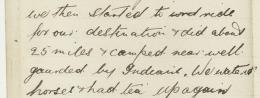 we then started to word ride
for our destination & did about
25 miles & camped near well
gaurded by Indians, We watered
horses & had tea up again